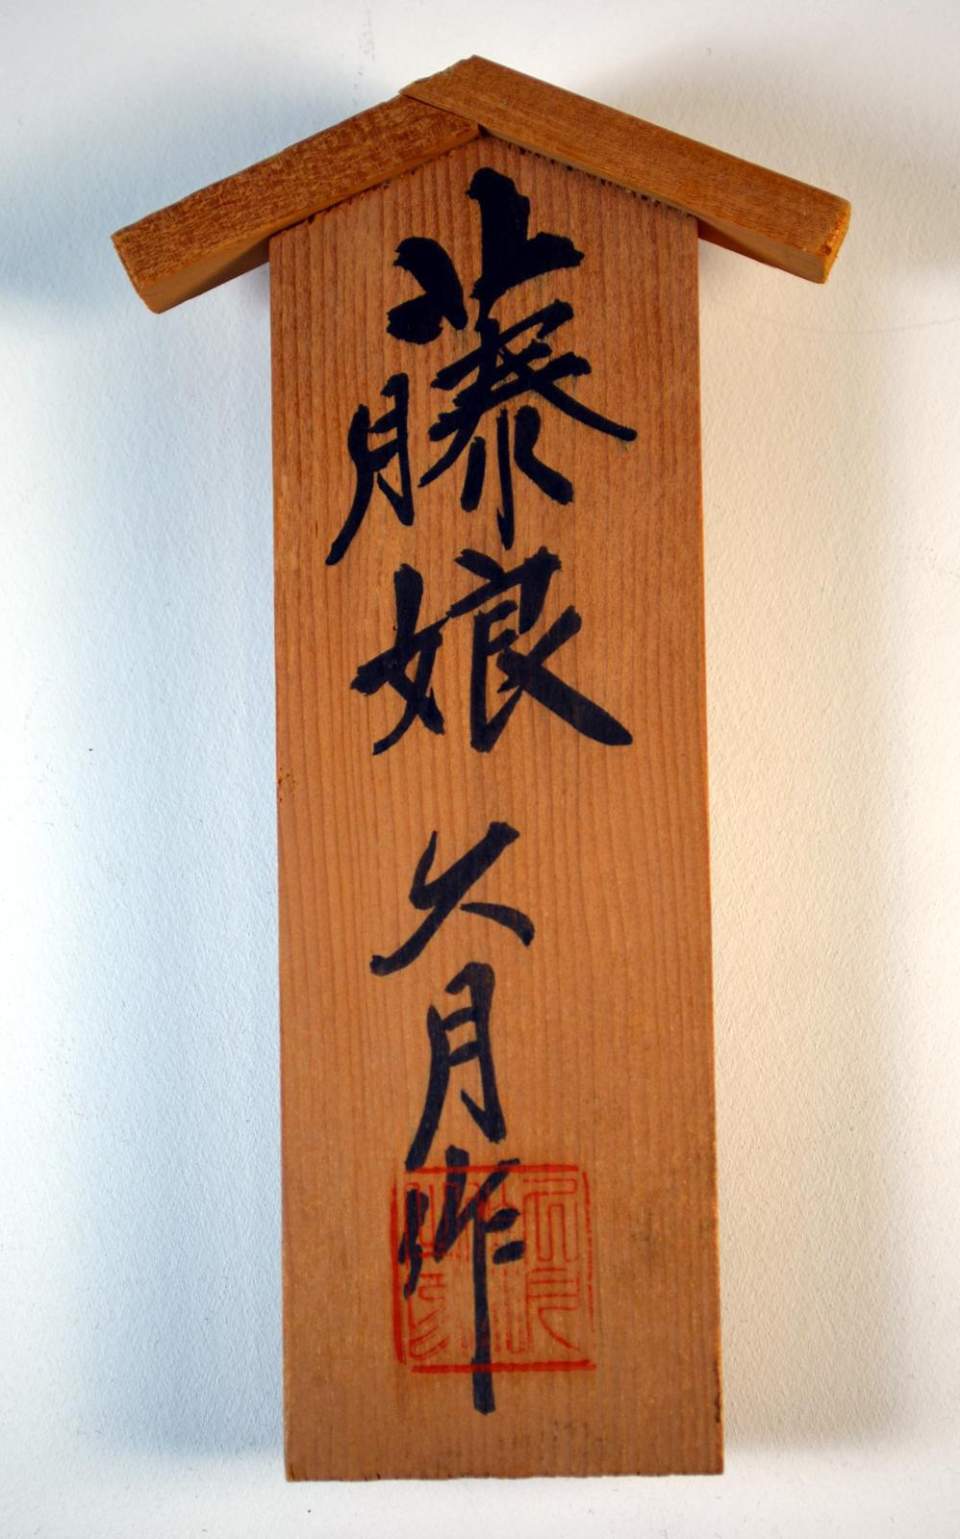 藤娘 久月作